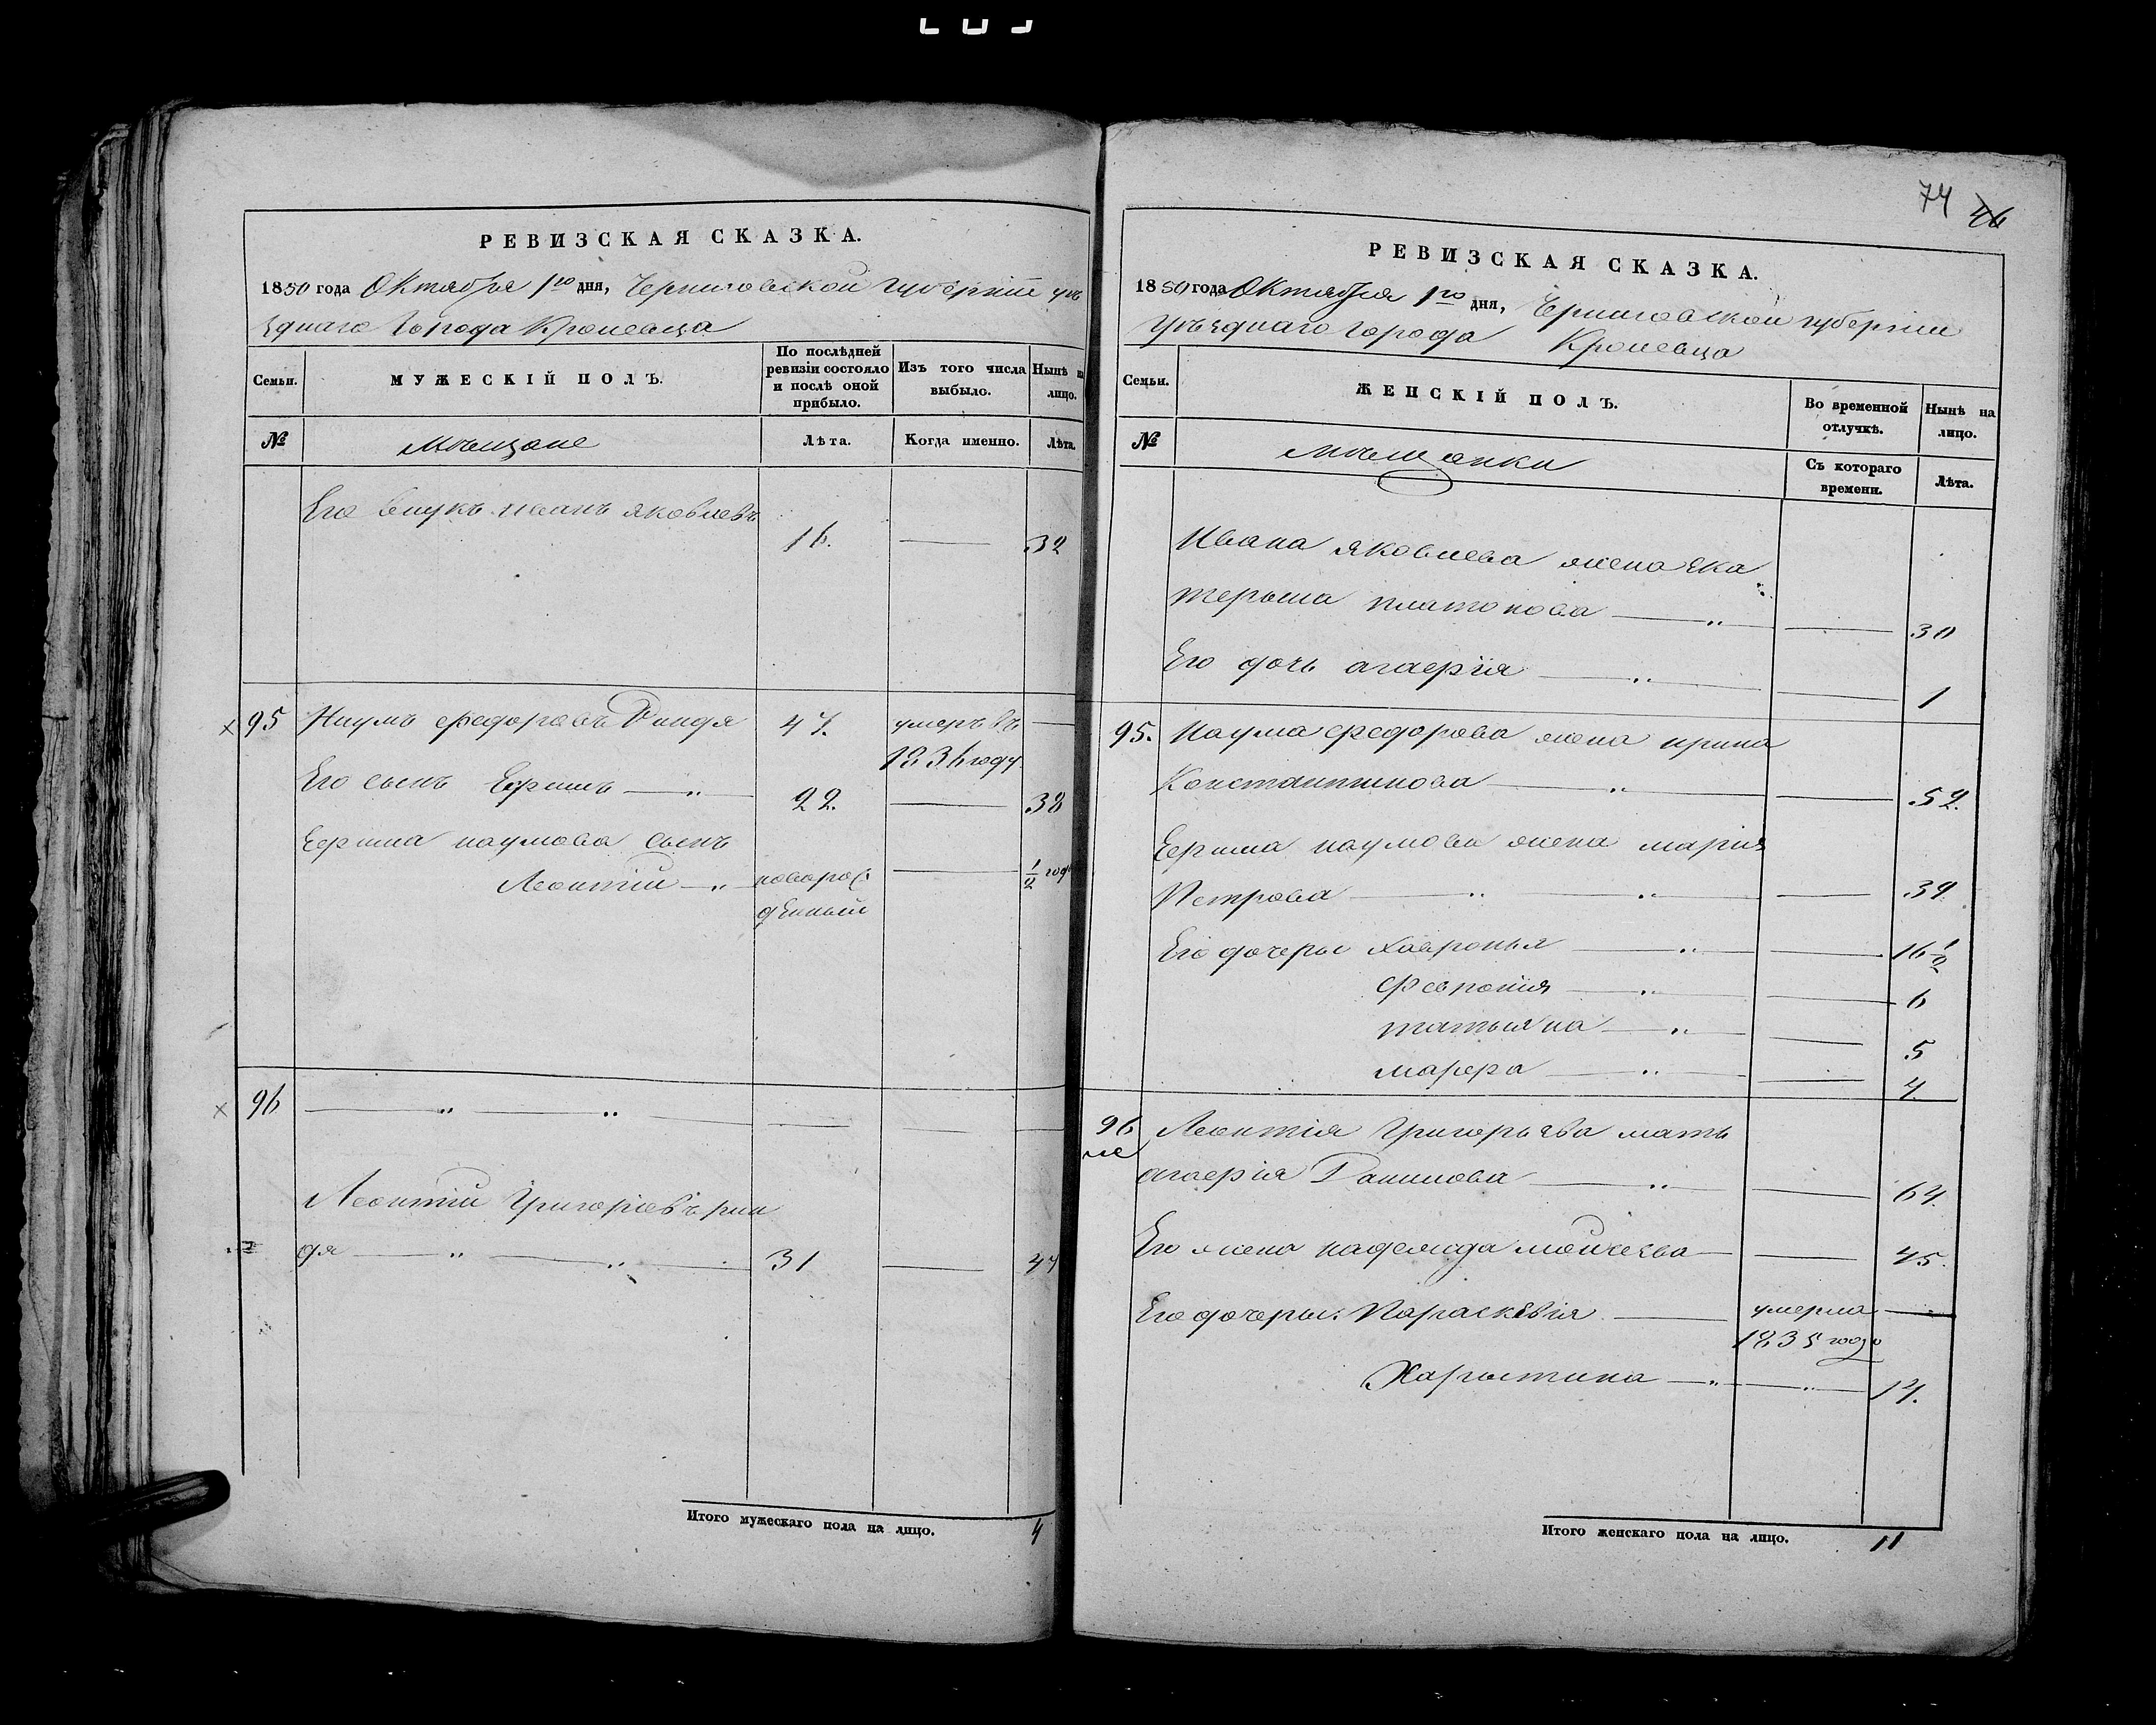 74 46
РЕВИЗСКАЯ СКАЗКА.
1850 года Октября 1го дня, Черниговской губернiи уѣ
зднаго Города Кролевца
Семьи.
МУЖЕСКIЙ ПОЛЪ.
По послѣдней ревизiи состояло и послѣ оной прибыло.
Изъ того числа выбыло.
Нынѣ на лицо.
№
мѣщане
Лѣта.
Когда именно.
Лѣта.
Его внукъ иванъ яковлевъ 16. 32
95 Наумъ федоровъ 47. умеръ въ
1836 году
Его сынъ Ефимъ — „ 22. 38
Ефима наумова сынъ
Леонтiй — „ новорож ½ года
денный
96 — „ — „
Леонтiй Григорiевъ рин
дя — „ — „ 31 47
Итого мужескаго пола на лицо. 4
РЕВИЗСКАЯ СКАЗКА.
1850 года Октября 1го дня, Черниговской губернiи
уѣзднаго города Кролевца
Семьи.
ЖЕНСКIЙ ПОЛЪ.
Во временной отлучкѣ.
Нынѣ на лицо.
№
мѣщанки
Съ котораго времени.
Лѣта.
Ивана яковлева жена ека
терина платонова — „ 30
Его дочь агафiя — „ 1
95. Наума федорова жена ирина
Константинова — „ 52.
Ефима наумова жена марiя
Петрова — „ — „ 39.
Его дочери хавронья — „ 16 ½
Февронiя — „ 6
татьяна — „ 5
марфа — „ 4
96 Леонтiя Григорьева мать
агафiя Данилова — „ 64.
Его жена надежда моисеева — 45.
Его дочери: Параскевiя — умерла
1835 года
Харитина — „ — „ 14.
Итого женскаго пола на лицо. 11